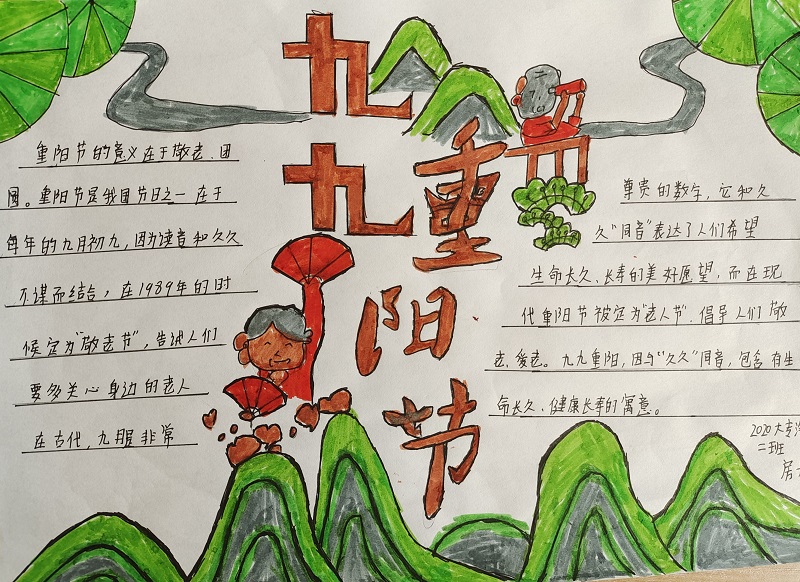 九九
重阳节
重阳节的意义在于敬老、团
圆。重阳节是我国节日之一 在于
每年的九月初九,因为读音和久久
不谋而结合,在1989年的时
候定为“敬老节”,告诫人们
要多关心身边的老人
在古代,九
非常
尊贵的数字,它和久
久“同音”表达了人们希望
生命长久、长寿的美好愿望,而在现
代重阳节被定为“老人节”.倡导人们敬
老、爱老。九九重阳,因与“久久”同音,包含有生
命长久、健康长寿的寓意。
2020大专
二班